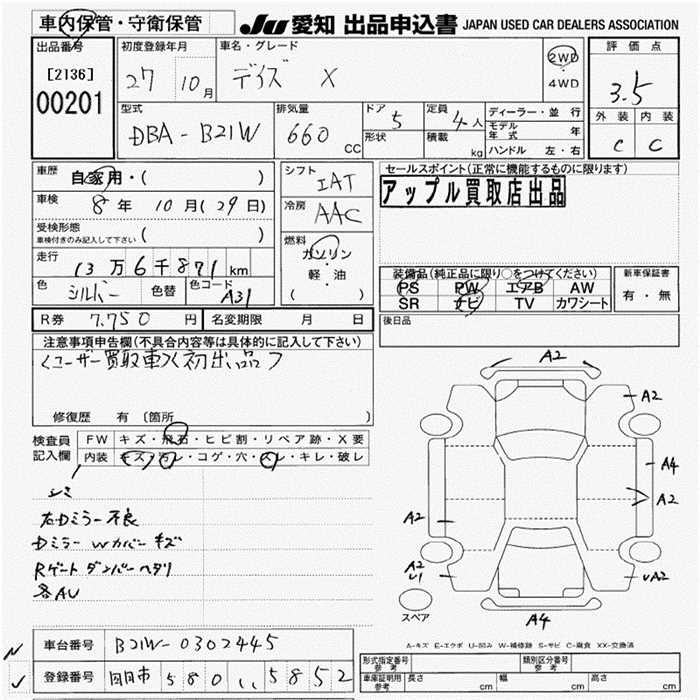 車内保管・守衛保管 JU 愛知 出品申込書 JAPAN USED CAR DEALERS ASSOCIATION
出品番号 初度登録年月 車名・グレード 評価点
[2136] 27 10月 デイズ X 2WD・4WD 3.5
00201
型式 排気量 ドア 5 定員 4人 ディーラー・並行 外装 内装
DBA-B21W 660 CC 形状 積載 kg モデル年式 年 C C
ハンドル 左・右
車歴 自家用・( ) シフト IAT セールスポイント(正常に機能するものに限ります)
車検 8年 10月(29日) 冷房 AAC アップル買取店出品
受検形態 車検付きのみ記入して下さい ( )
走行 13万6千871km 燃料 ガソリン・軽・油 ( )
装備品(純正品に限り○をつけてください) 新車保証書
色 シルバー 色替 色コード A31 PS PW エアB AW 有・無
SR ナビ TV カワシート
R券 7.750円 名変期限 月 日 後日品
注意事項申告欄(不具合内容等は具体的に記入して下さい)
<ユーザー買取車><初出品>
修復歴 有 〔箇所
検査員記入欄 FW キズ・飛石・ヒビ割・リペア跡・X要
内装 キズ・汚レ・コゲ・穴・スレ・キレ・破レ
シミ
右Dミラー不良
Dミラー Wカバーキズ
Rゲートダンパーヘタリ
各AU
A2
A2
A4
A2
A2
A2
U1
UA2
スペア
A4
A-キズ E-エクボ U-凹み W-補修跡 S-サビ C-腐食 XX-交換済
車台番号 B21W-0302445
登録番号 580 い 5852
形式指定番号 参考 類別区分番号 参考
車庫証明用 参考 長さ cm 幅 cm 高さ cm